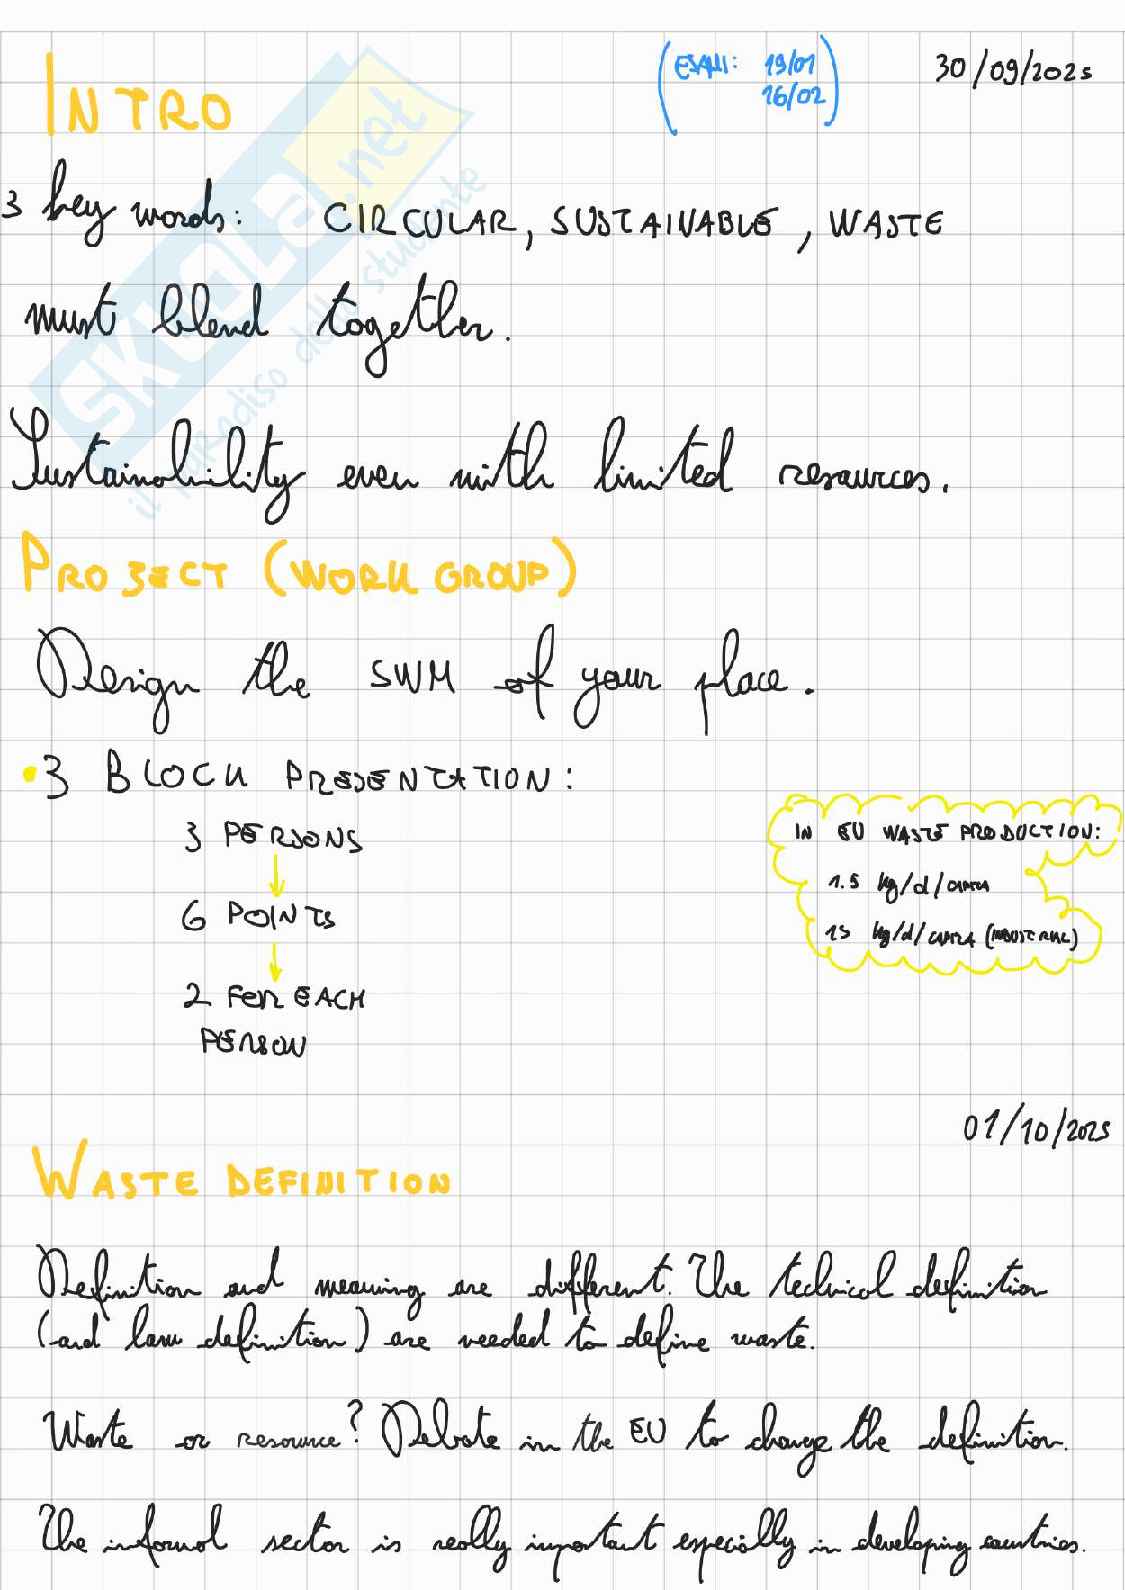 INTRO
(ESAMI: 19/01
16/02)
30/09/2025
3 key words: CIRCULAR, SUSTAINABLE, WASTE
must blend together.
Sustainability even with limited resources.
PROJECT (WORK GROUP)
Design the SWM of your place.
• 3 BLOCK PRESENTATION:
3 PERSONS
↓
6 POINTS
↓
2 FOR EACH
PERSON
IN EU WASTE PRODUCTION:
1.5 kg/d/CAPITA
15 kg/d/CAPITA (INDUSTRIAL)
01/10/2025
WASTE DEFINITION
Definition and meaning are different. The technical definition
(and law definition) are needed to define waste.
Waste or resource? Debate in the EU to change the definition.
The informal sector is really important especially in developing countries.
SKUOLA.net
il paradiso dello studente